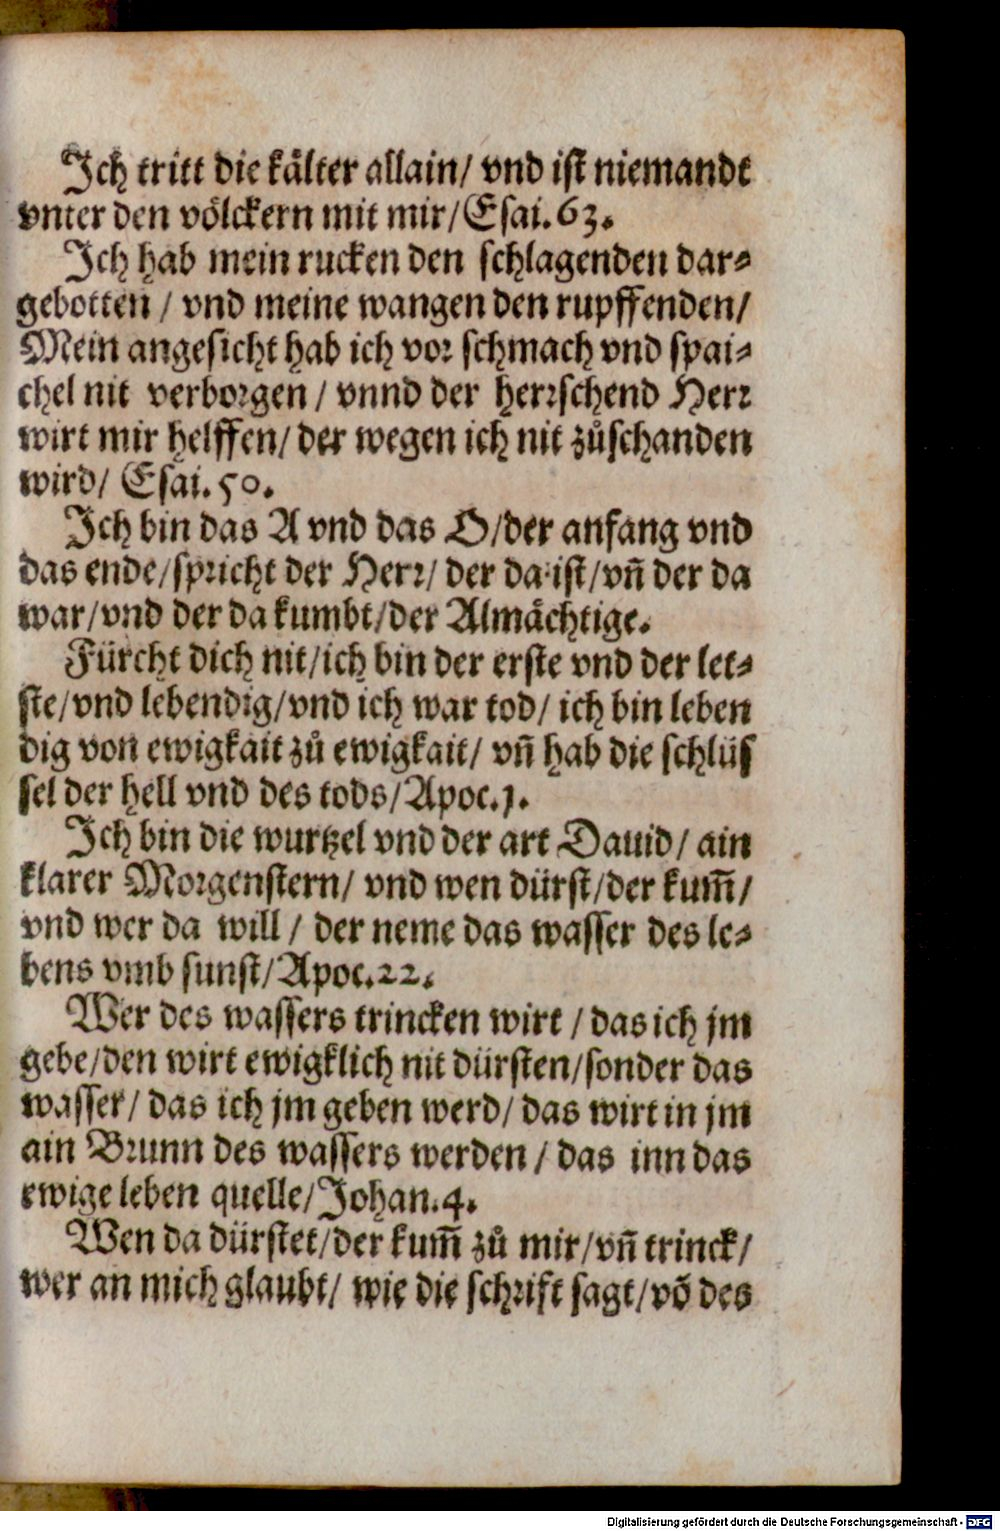 Ich tritt die kälter allain/ vnd ist niemandt
vnter den völckern mit mir/Esai.63.
Ich hab mein rucken den schlagenden dar-
gebotten / vnd meine wangen den rupffenden/
Mein angesicht hab ich vor schmach vnd spai-
chel nit verborgen / vnnd der herrschend Herr
wirt mir helffen/ der wegen ich nit zůschanden
wird/ Esai.50.
Ich bin das A vnd das O/der anfang vnd
das ende/spricht der Herr/ der da ist/vñ der da
war/vnd der da kumbt/der Almächtige.
Fürcht dich nit/ich bin der erste vnd der let-
ste/vnd lebendig/vnd ich war tod/ ich bin leben
dig von ewigkait zů ewigkait/ vñ hab die schlüs
sel der hell vnd des tods/Apoc.1.
Ich bin die wurtzel vnd der art Dauid/ ain
klarer Morgenstern/ vnd wen dürst/der kum̃/
vnd wer da will / der neme das wasser des le-
bens vmb sunst/Apoc.22.
Wer des wassers trincken wirt / das ich jm
gebe/den wirt ewigklich nit dürsten/sonder das
wasser/ das ich jm geben werd/ das wirt in jm
ain Brunn des wassers werden / das inn das
ewige leben quelle/Johan.4.
Wen da dürstet/der kum̃ zů mir/vñ trinck/
wer an mich glaubt/ wie die schrift sagt/võ des
Digitalisierung gefördert durch die Deutsche Forschungsgemeinschaft - DFG